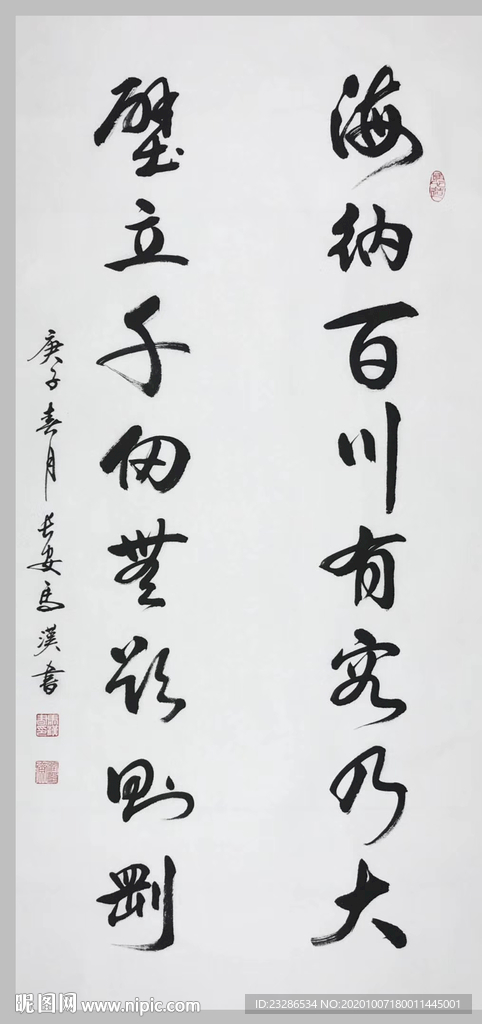 海纳百川有容乃大
壁立千仞無欲则刚
庚子春月长安马漢書
昵图网 www.nipic.com
ID:23286534 NO:20201007180011445001